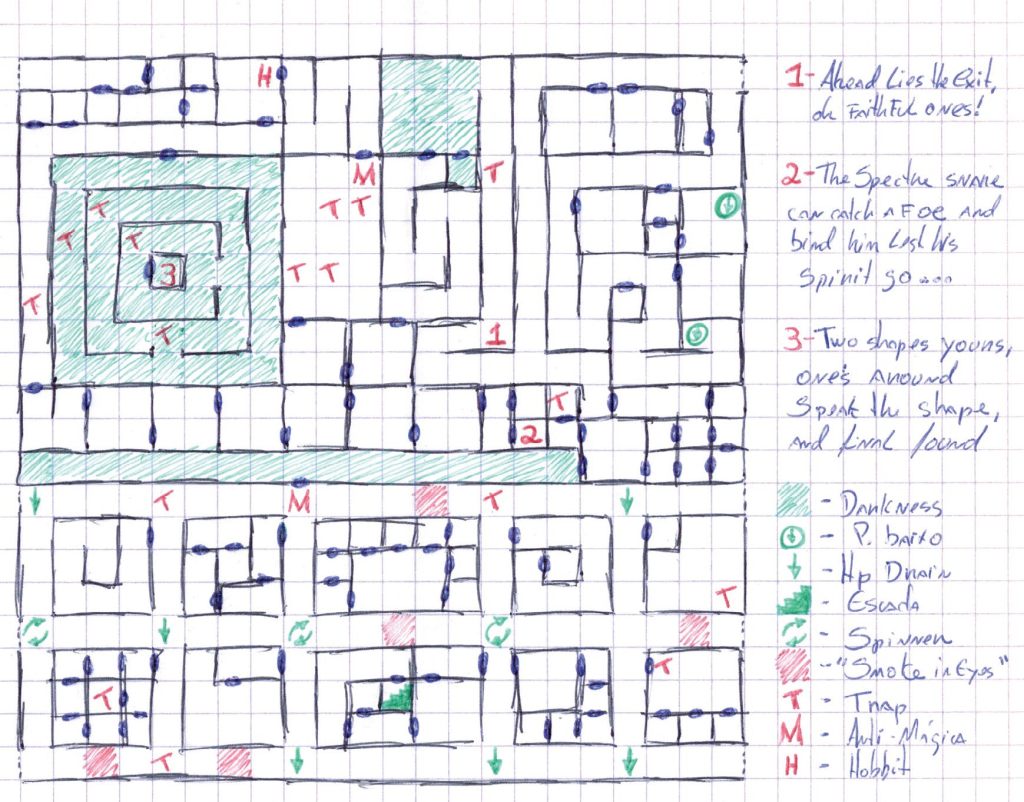 1- Ahead Lies the Exit,
oh FAithful ones!
2- The Spectre snare
can catch a Foe and
bind him Lest his
Spirit go....
3- Two shapes yours,
one's Around
Speak the shape,
and final found
- Darkness
- P. baixo
- Hp Drain
- Escada
- Spinner
- "Smoke in Eyes"
T - Trap
M - Anti-Mágica
H - Hobbit
H
M
T
T T
T
T
T
3
T T
T
T
1
T
2
T
M
T
T
T
T
T